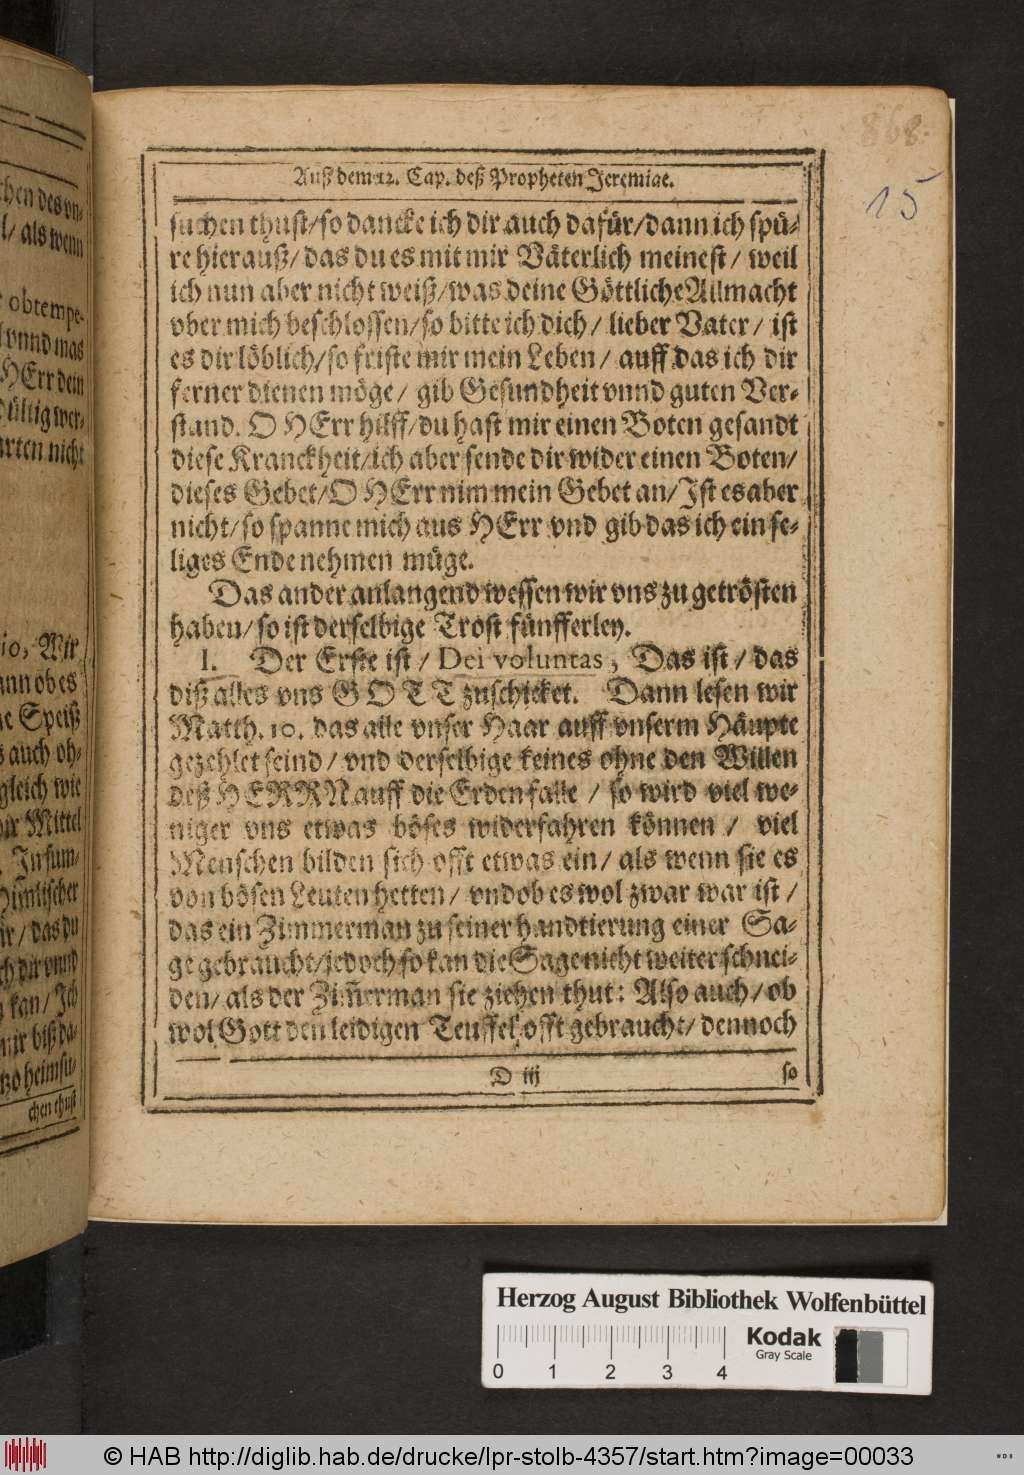 868.
15
Auß dem 12. Cap. deß Propheten Jeremiae.
suchen thust/so dancke ich dir auch dafür/dann ich spü-
re hierauß/das du es mit mir Väterlich meinest/ weil
ich nun aber nicht weiß/was deine Göttliche Allmacht
vber mich beschlossen/so bitte ich dich/ lieber Vater/ ist
es dir löblich/so friste mir mein Leben/ auff das ich dir
ferner dienen möge/ gib Gesundheit vnnd guten Ver-
stand. O HErr hilff/du hast mir einen Boten gesandt
diese Kranckheit/ich aber sende dir wider einen Boten/
dieses Gebet/O HErr nim mein Gebet an/Ist es aber
nicht/so spanne mich aus HErr vnd gib das ich ein se-
liges Ende nehmen müge.
Das ander anlangend wessen wir vns zu getrösten
haben/so ist derselbige Trost fünfferley.
I. Der Erste ist/ Dei voluntas, Das ist/ das
diß alles vns GOTT zuschicket. Dann lesen wir
Matth. 10. das alle vnser Haar auff vnserm Häupte
gezehlet seind/ vnd derselbige keines ohne den Willen
deß HERRN auff die Erden falle/ so wird viel we-
niger vns etwas böses widerfahren können/ viel
Menschen bilden sich offt etwas ein/ als wenn sie es
von bösen Leuten hetten/ vnd ob es wol zwar war ist/
das ein Zimmerman zu seiner handtierung einer Sa-
ge gebraucht/jedoch so kan die Sage nicht weiter schnei-
den/ als der Zim̄erman sie ziehen thut: Also auch/ ob
wol Gott den leidigen Teuffel offt gebraucht/ dennoch
D iij
so
chen des vn-
l/ als wenn
obtempe-
HErr dein
dültig wer-
rten nicht
10, Wir
ann ob es
e Speiß
s auch oh-
gleich wie
Mittel
In sum-
Himlischer
/ das du
ch dir vnnd
kan/ Ich
mir biß da-
heimsu-
chen thust
Herzog August Bibliothek Wolfenbüttel
Kodak
Gray Scale
0 1 2 3 4
© HAB http://diglib.hab.de/drucke/lpr-stolb-4357/start.htm?image=00033